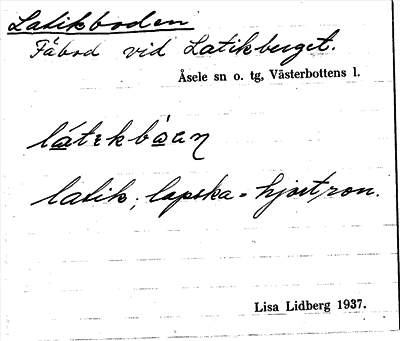 Latikboden
Fäbod vid Latikberget.
Åsele sn o. tg, Västerbottens l.
latik; lapska = hjortron.
Lisa Lidberg 1937.